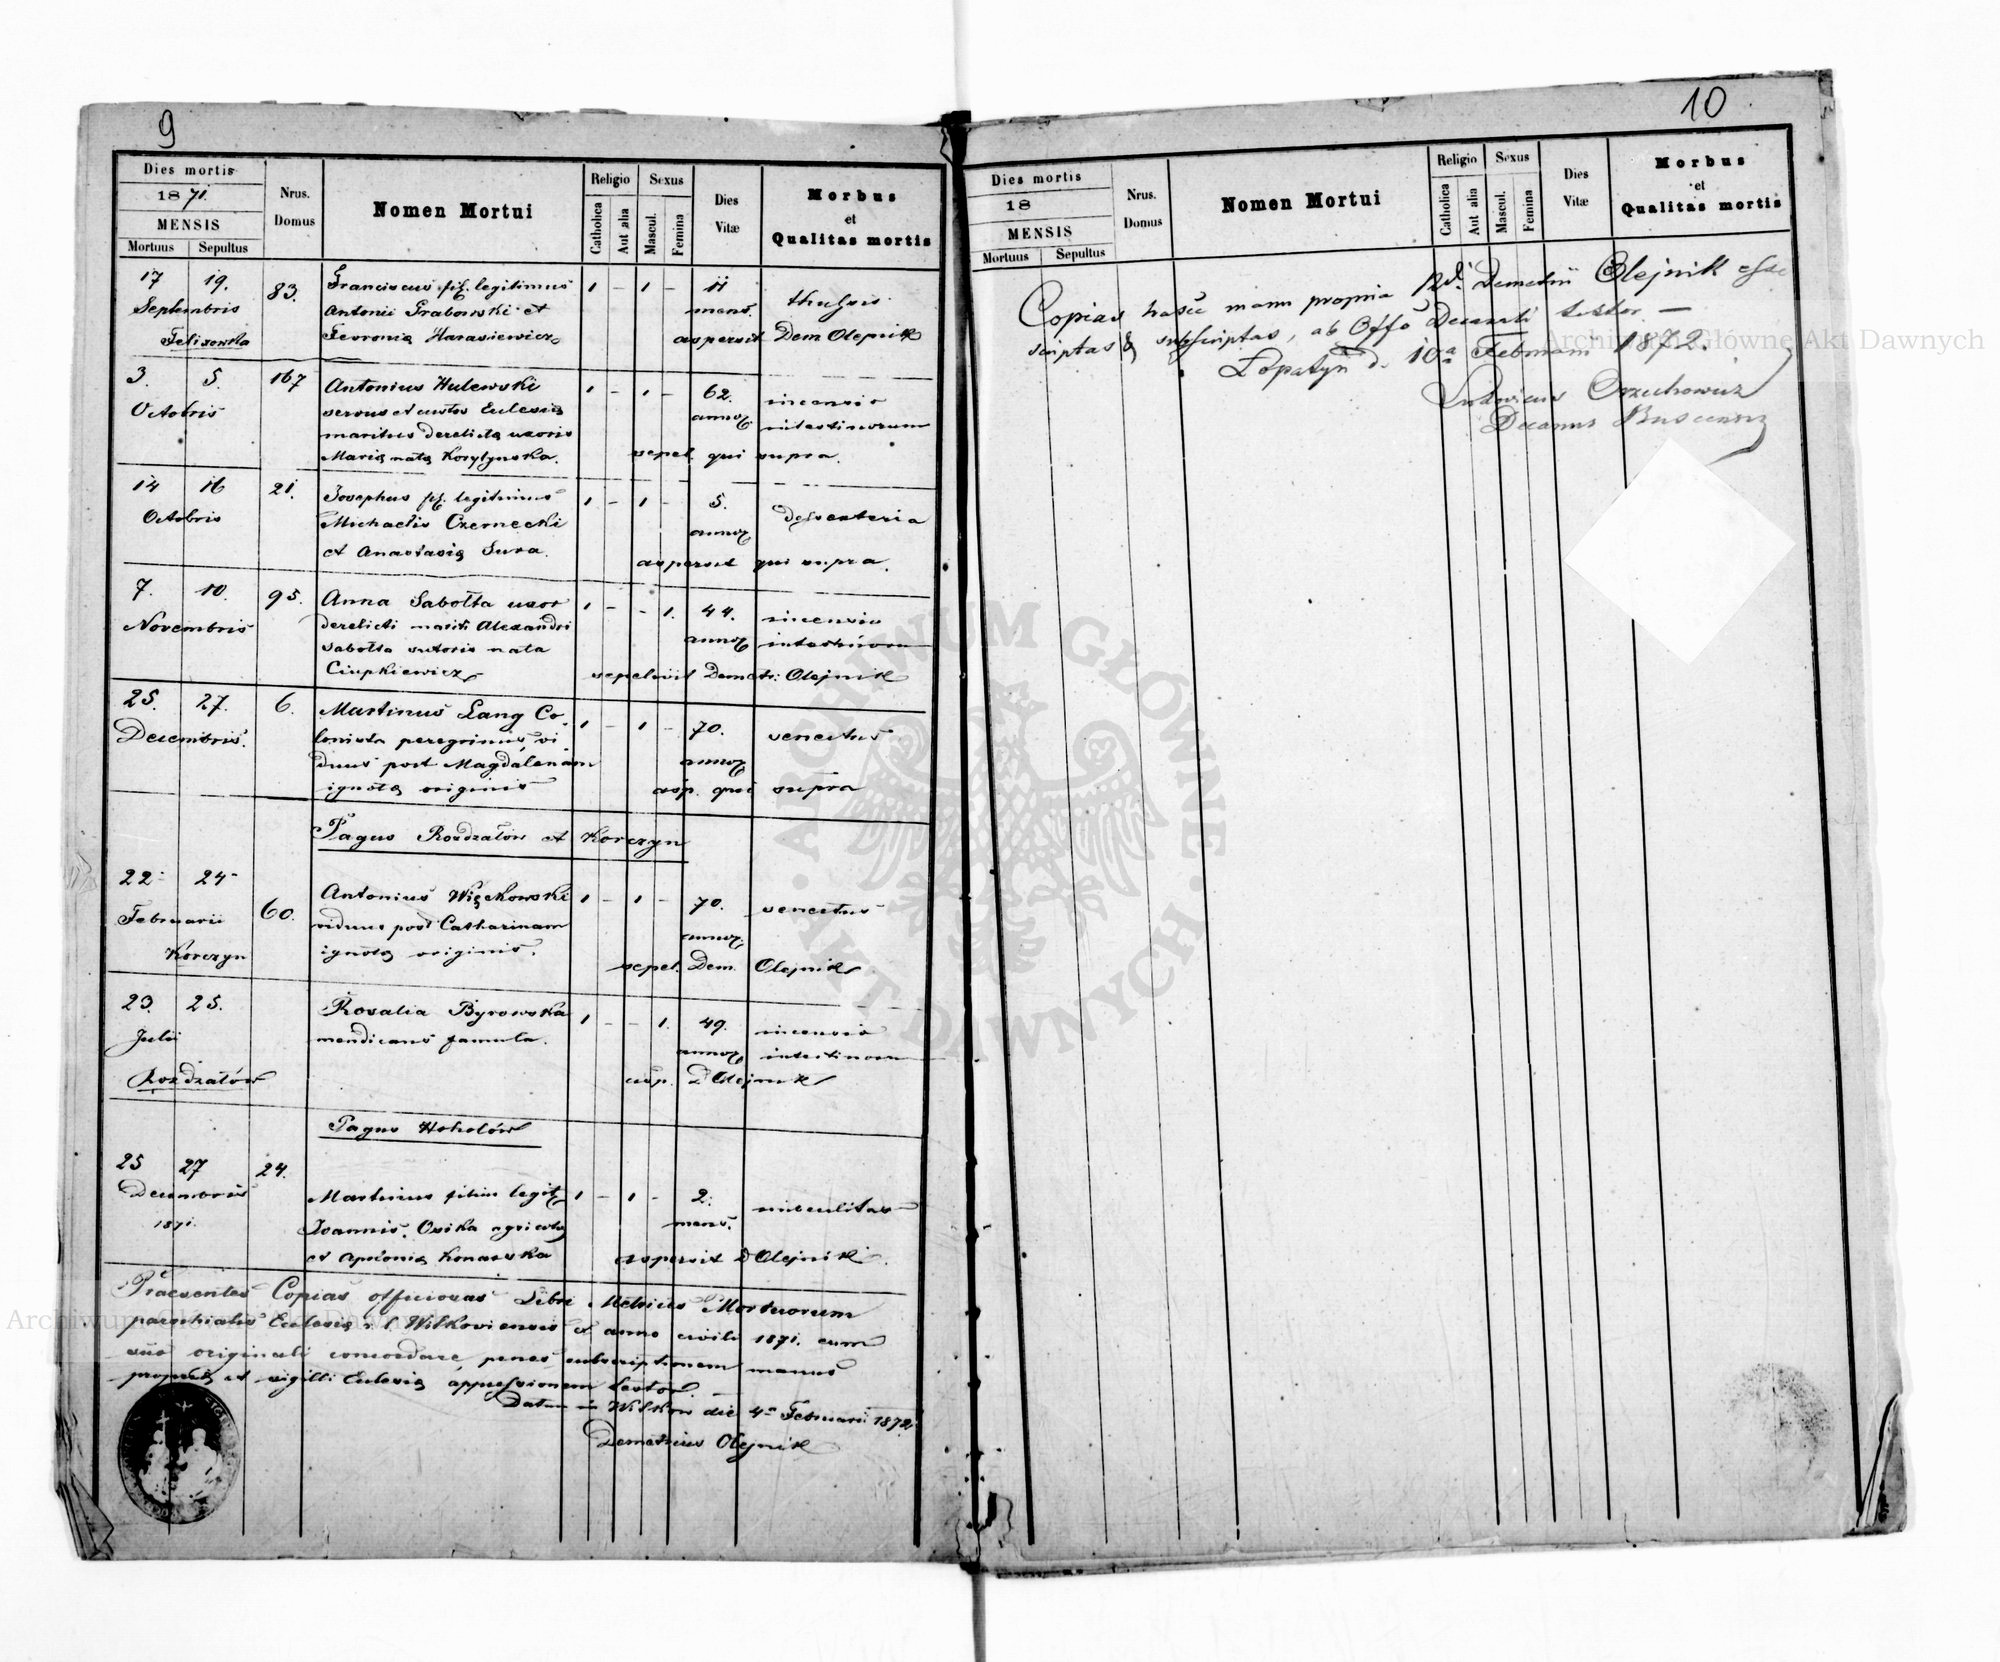 9
Dies mortis
1871.
MENSIS
Mortuus Sepultus
Nrus. Domus
Nomen Mortui
Religio
Catholica
Aut alia
Sexus
Mascul.
Femina
Dies Vitæ
Morbus et Qualitas mortis
17 19. 83. Franciscus fil. legitimus 1 - 1 - 11
Septembris Antonii Grabowski et mens. thussis
Felixowka Fevronia Harasiewicz aspersit Dem Olejnik
3. 5. 167 Antonius Hulewski 1 - 1 - 62. incensio
Octobris servus et custos Eclesię annoꝝ intestinorum
maritus derelictę uxoris
Marię natę Korytynska. sepel. qui supra.
14 16 21. Josephus fil. legitimus 1 - 1 - 5.
Octobris Michaelis Czernecki annoꝝ
et Anastasię Sura. aspersit qui supra.
7. 10. 95. Anna Sabotta uxor 1 - - 1. 44. incensio
Novembris derelicti mariti Alexandri annoꝝ
Sabotta sutoris nata
Ciupkiewicz sepelivit Demetr: Olejnik
25. 27. 6. Martinus Lang Co- 1 - 1 - 70. senectus
Decembris. lonista peregrinus, vi-
duus post Magdalenam annoꝝ
ignotę originis asp. qui supra
Pagus Rozdzałów et Korczyn
22 24 60. Antonius Więckowski 1 - 1 - 70. senectus
Februarii viduus post Catharinam annoꝝ
Korczyn ignotę originis. sepel. Dem. Olejnik
23. 25. Rosalia Byrowska 1 - - 1. 49. incensio
Julii mendicans famula. annoꝝ
Rozdzałów asp. D Olejnik
Pagus Hohołów
25 27 24.
Decembris Martinus filius legit. 1 - 1 - 2.
1871. Joannis Osika agricolę mens.
et Apolonię Konarska aspersit D Olejnik.
Praesentes Copias officiosas Libri Metrices Mortuorum
parochialis Eclesię r. l. Witkoviensis et anno civili 1871. cum
suo originali concordare, penes subscriptionem manus
proprię et sigilli Eclesię appressionem testor. —
Datum in Witkow die 4a Februarii 1872.
Demetrius Olejnik
10
Dies mortis
18
MENSIS
Mortuus Sepultus
Nrus. Domus
Nomen Mortui
Religio
Catholica
Aut alia
Sexus
Mascul.
Femina
Dies Vitæ
Morbus et Qualitas mortis
Copias hasce manu propria Rdi. Demetrii Olejnik esse
scriptas & subscriptas, ab Offo Decanali testor. —
Łopatyn d. 10a Februarii 1872.
Ludovicus Orzechowicz
Decanus Buscensis
ARCHIWUM GŁÓWNE AKT DAWNYCH
Archiwum Główne Akt Dawnych
Archiwum Główne Akt Dawnych